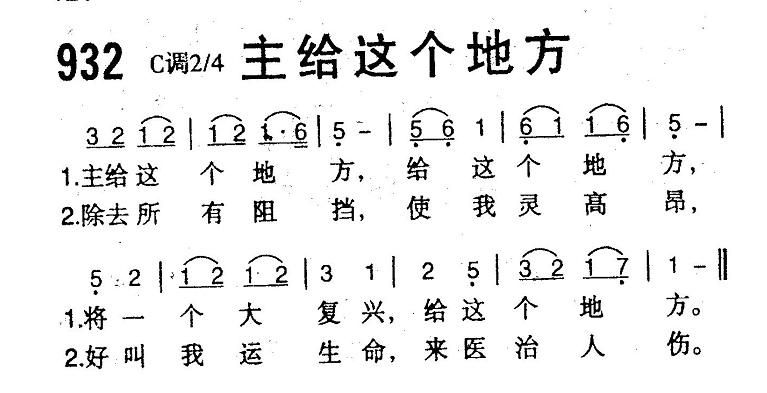 932 C调2/4 主给这个地方
3 2 1 2 | 1 2 1· 6 | 5 - | 5 6 1 | 6 1 1 6 | 5 - |
1.主给这 个 地 方, 给 这 个 地 方,
2.除去所 有 阻 挡, 使 我 灵 高 昂,
5 2 | 1 2 1 2 | 3 1 | 2 5 | 3 2 1 7 | 1 - ‖
1.将 一 个 大 复 兴, 给 这 个 地 方。
2.好 叫 我 运 生 命, 来 医 治 人 伤。